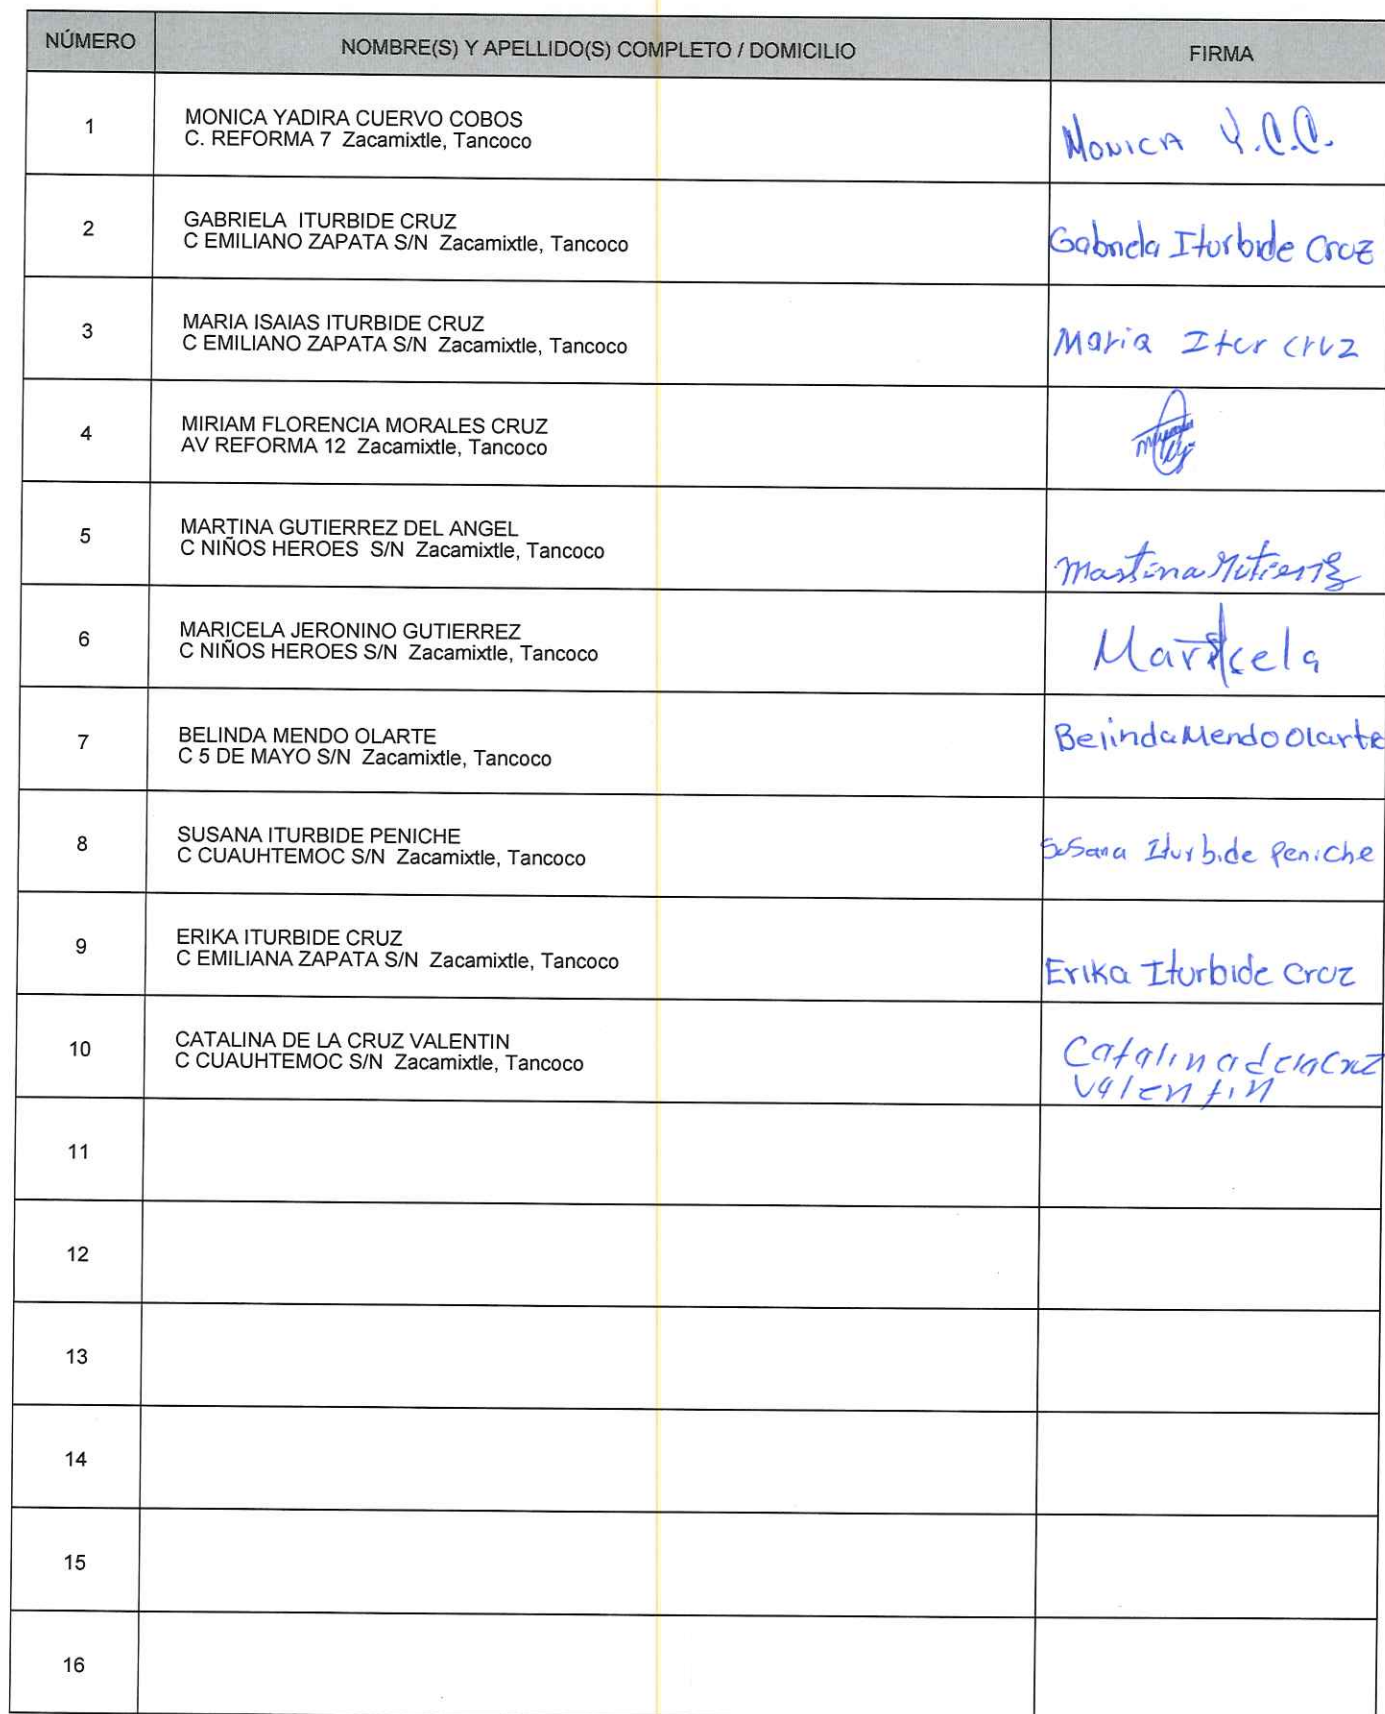 NÚMERO NOMBRE(S) Y APELLIDO(S) COMPLETO / DOMICILIO FIRMA
1 MONICA YADIRA CUERVO COBOS
C. REFORMA 7 Zacamixtle, Tancoco
MONICA Y.C.C.
2 GABRIELA ITURBIDE CRUZ
C EMILIANO ZAPATA S/N Zacamixtle, Tancoco
Gabriela Iturbide Cruz
3 MARIA ISAIAS ITURBIDE CRUZ
C EMILIANO ZAPATA S/N Zacamixtle, Tancoco
Maria Itur cruz
4 MIRIAM FLORENCIA MORALES CRUZ
AV REFORMA 12 Zacamixtle, Tancoco
5 MARTINA GUTIERREZ DEL ANGEL
C NIÑOS HEROES S/N Zacamixtle, Tancoco
Martina Gutierrez
6 MARICELA JERONINO GUTIERREZ
C NIÑOS HEROES S/N Zacamixtle, Tancoco
Maricela
7 BELINDA MENDO OLARTE
C 5 DE MAYO S/N Zacamixtle, Tancoco
Belinda Mendo Olarte
8 SUSANA ITURBIDE PENICHE
C CUAUHTEMOC S/N Zacamixtle, Tancoco
Susana Iturbide Peniche
9 ERIKA ITURBIDE CRUZ
C EMILIANA ZAPATA S/N Zacamixtle, Tancoco
Erika Iturbide Cruz
10 CATALINA DE LA CRUZ VALENTIN
C CUAUHTEMOC S/N Zacamixtle, Tancoco
Catalina de la Cruz
Valentin
11
12
13
14
15
16